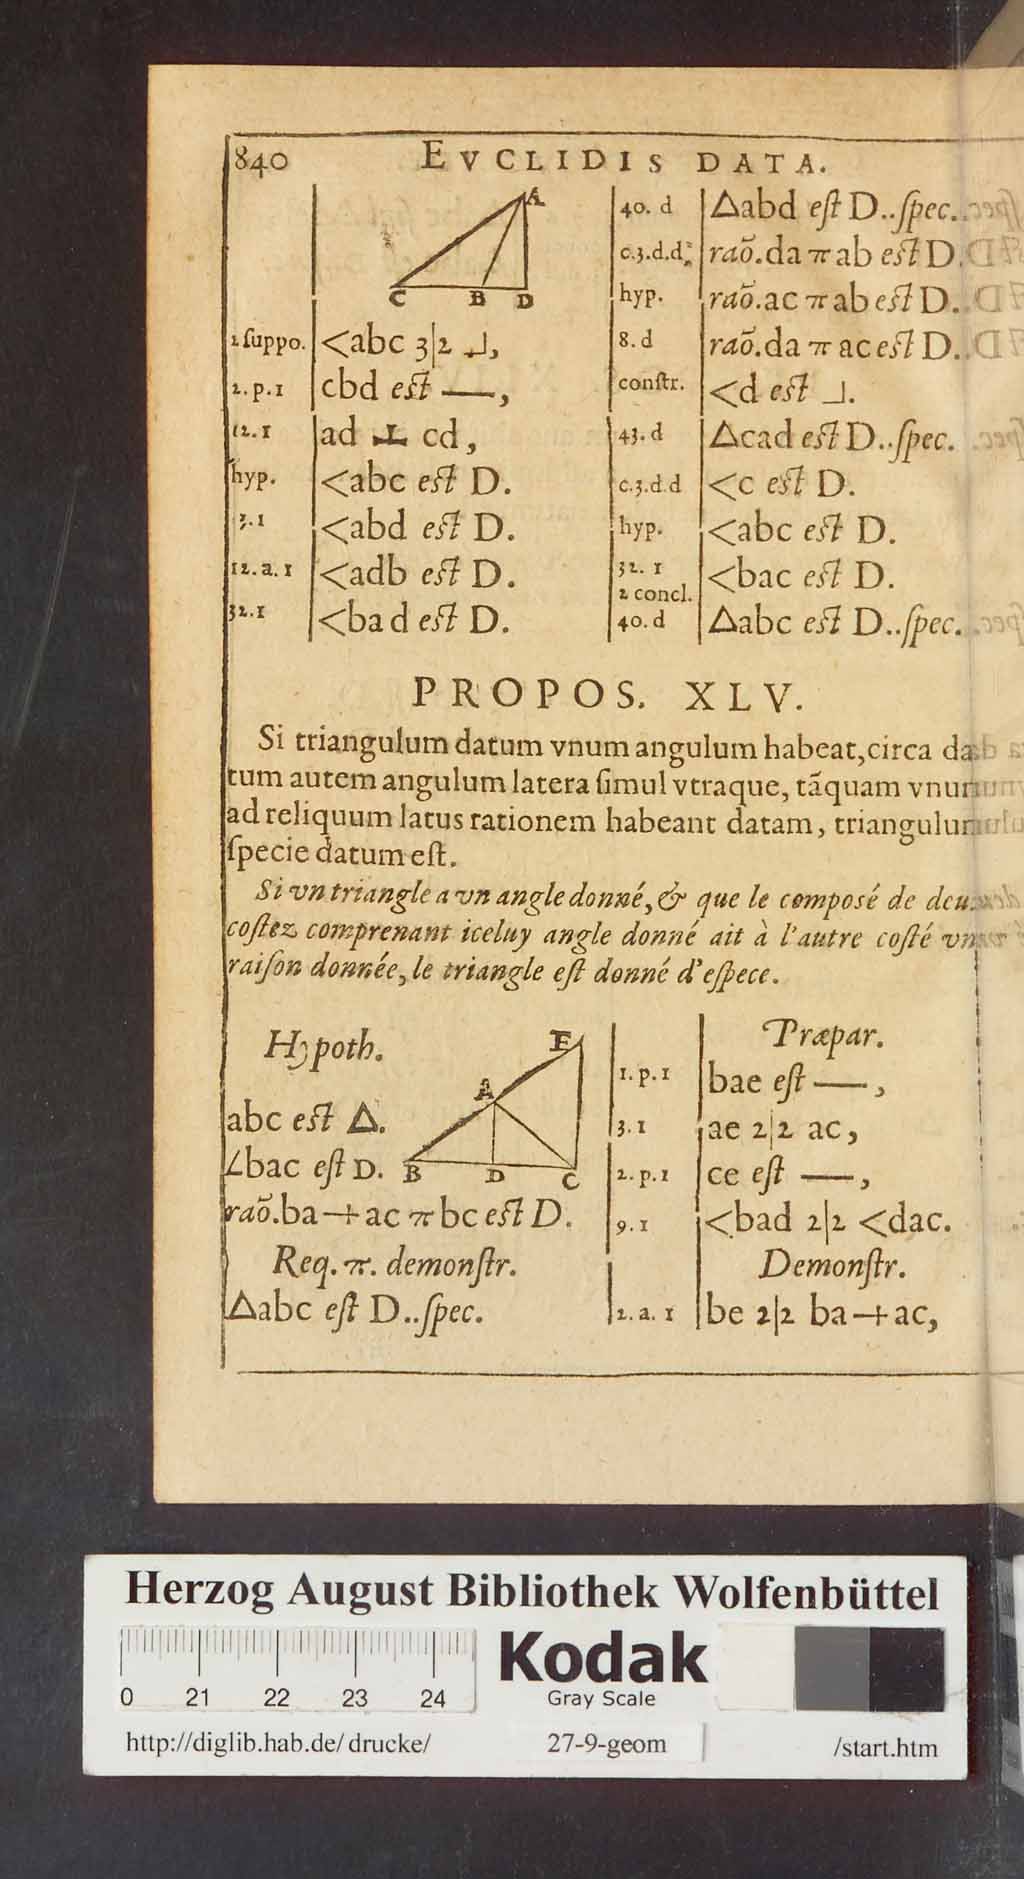 840 EVCLIDIS DATA.
A
C B D
2 suppo. <abc 3|2 ⅃,
2.p.1 cbd est —,
12.1 ad ⊥ cd,
hyp. <abc est D.
3.1 <abd est D.
12.a.1 <adb est D.
32.1 <bad est D.
40. d Δabd est D..spec.
c.3.d.d raō.da π ab est D.
hyp. raō.ac π ab est D.
8.d raō.da π ac est D.
constr. <d est ⅃.
43.d Δcad est D..spec.
c.3.d.d <c est D.
hyp. <abc est D.
32.1 <bac est D.
2 concl.
40.d Δabc est D..spec.
PROPOS. XLV.
Si triangulum datum vnum angulum habeat, circa da-
tum autem angulum latera simul vtraque, tãquam vnum
ad reliquum latus rationem habeant datam, triangulum
specie datum est.
Si vn triangle a vn angle donné, & que le composé de deux
costez comprenant iceluy angle donné ait à l'autre costé vne
raison donnée, le triangle est donné d'espece.
Hypoth.
E
A
B D C
abc est Δ.
∠bac est D.
raō.ba+ac π bc est D.
Req. π. demonstr.
Δabc est D..spec.
Præpar.
1.p.1 bae est —,
3.1 ae 2|2 ac,
2.p.1 ce est —,
9.1 <bad 2|2 <dac.
Demonstr.
2.a.1 be 2|2 ba+ac,
Herzog August Bibliothek Wolfenbüttel
0 21 22 23 24
Kodak
Gray Scale
http://diglib.hab.de/drucke/ 27-9-geom /start.htm